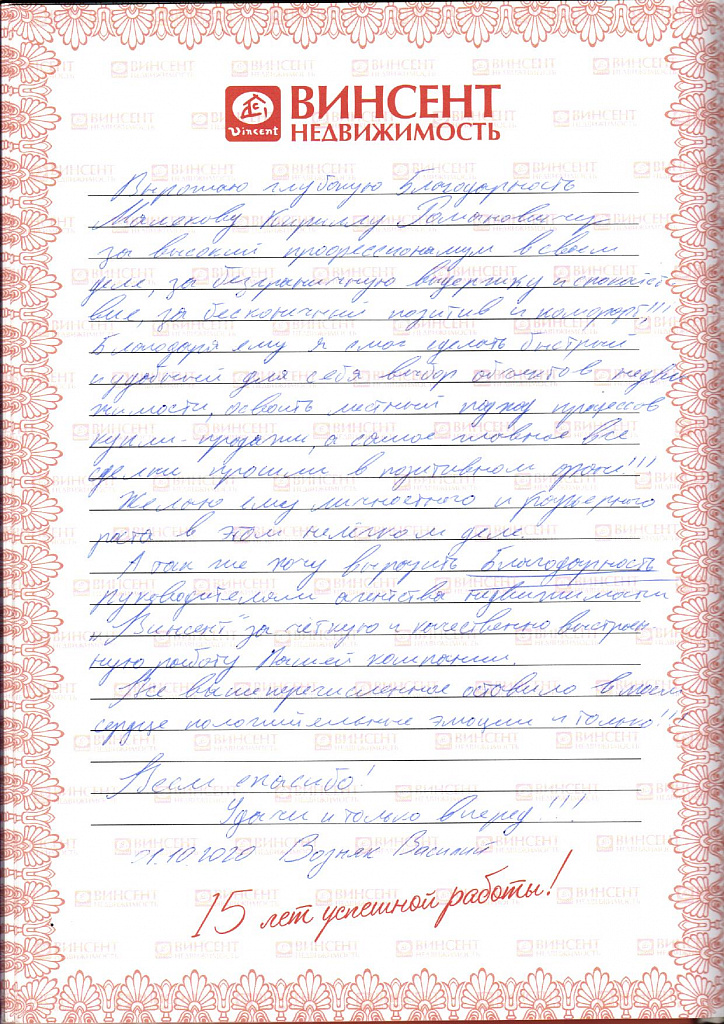 ВИНСЕНТ
НЕДВИЖИМОСТЬ
Vincent
Выражаю глубокую Благодарность
Малахову Кириллу Романовичу
за высокий профессионализм в своём
деле, за безграничную выдержку и спокойст-
вие, за бесконечный позитив и комфорт!!!
Благодаря ему я смог сделать быстрый
и удобный для себя выбор объектов недви
жимости, освоить местный подход процессов
купли-продажи, а самое главное все
сделки прошли в позитивном фоне!!!
Желаю ему личностного и карьерного
роста в этом нелёгком деле.
А так же хочу выразить Благодарность
руководителям агентства недвижимости
"Винсент" за чёткую и качественно выстроен-
ную работу Вашей компании.
Все вышеперечисленное оставило в моём
сердце положительные эмоции и только!!
Всем спасибо!
Удачи и только вперед!!!
21.10.2020 Возняк Василий
15 лет успешной работы!